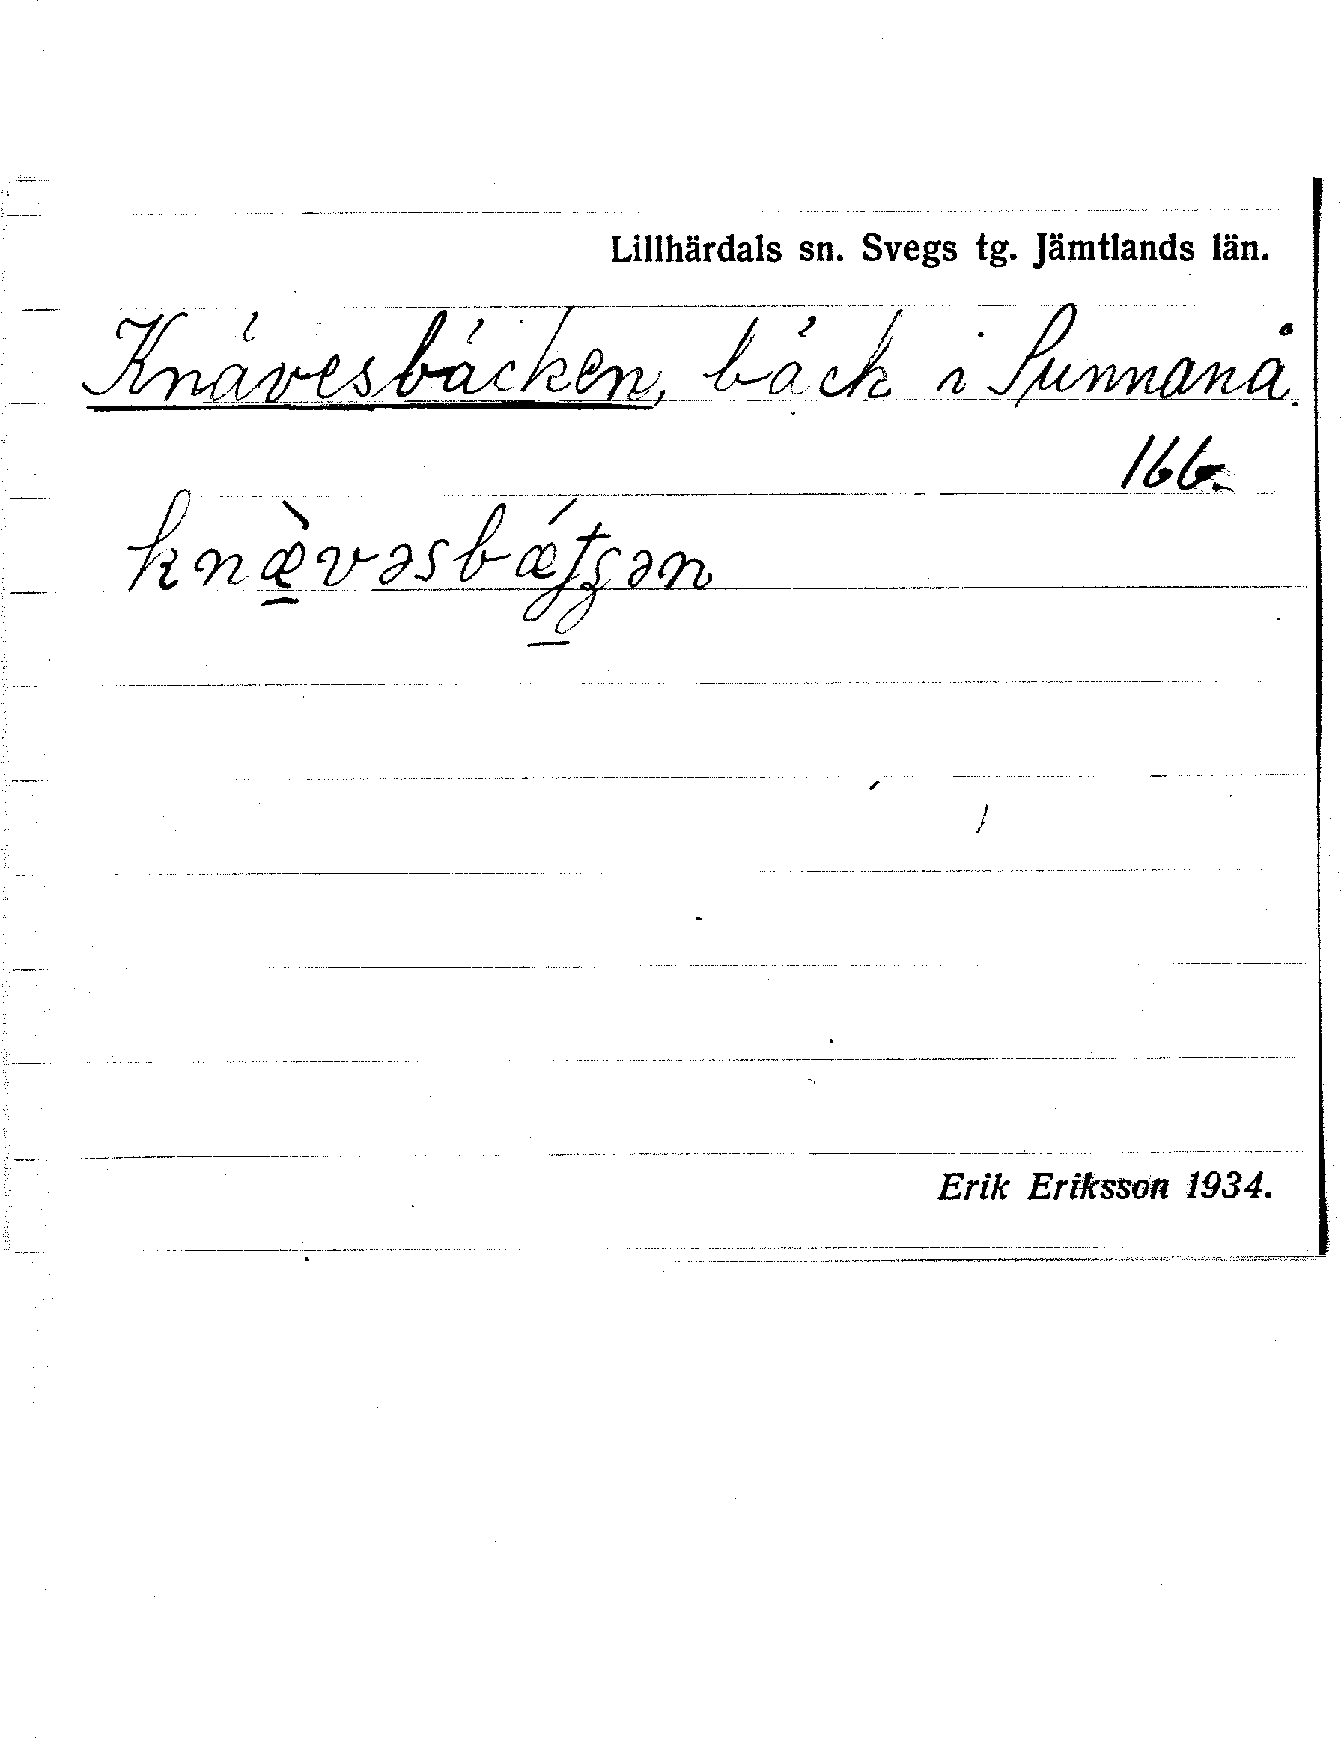 Lillhärdals sn. Svegs tg. Jämtlands län.
Knävesbäcken, bäck i Sunnanå.
166.
knæ̀vəsbǽtʂən
Erik Eriksson 1934.